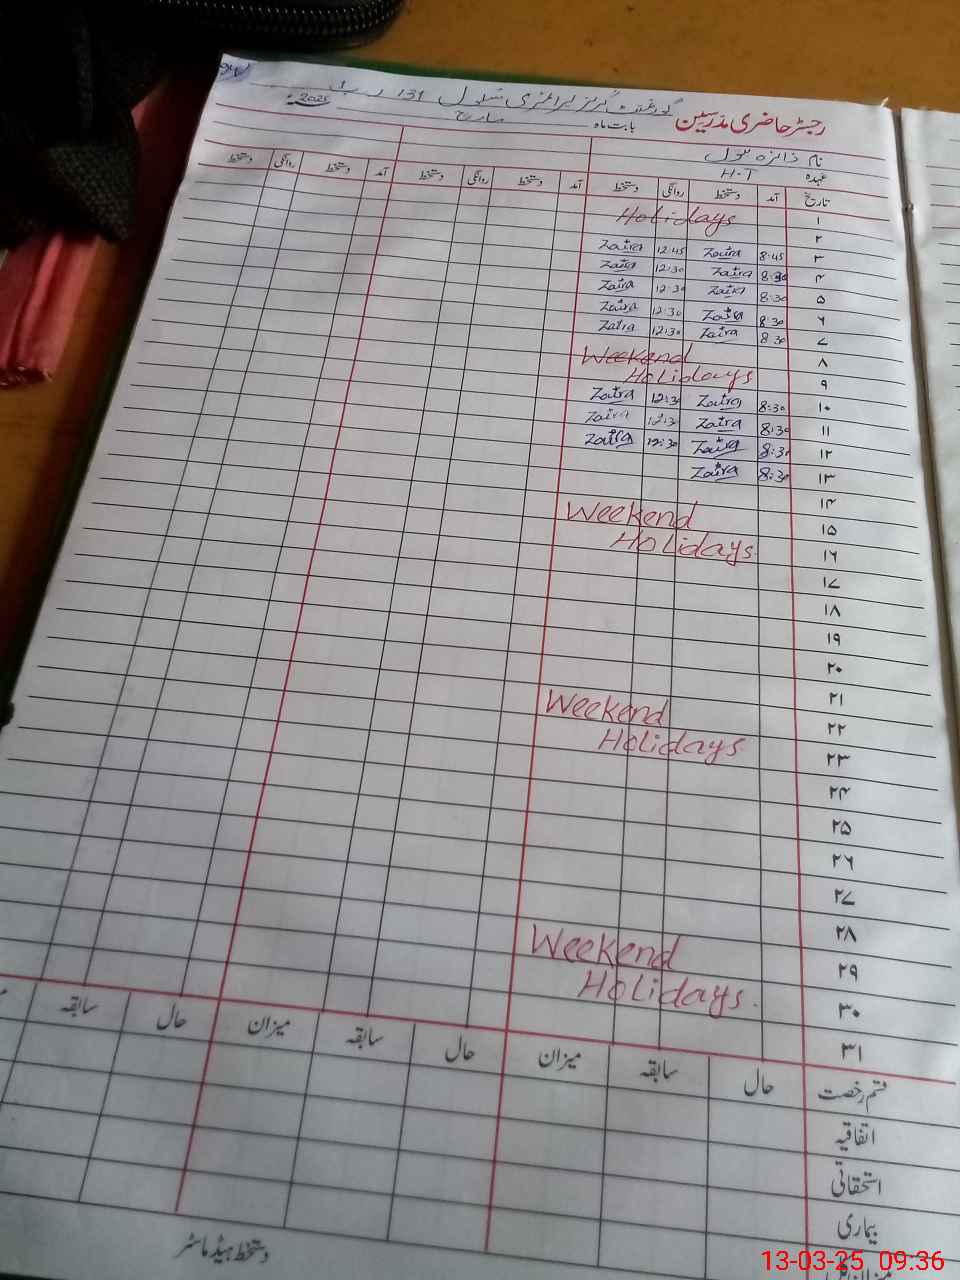 گورنمنٹ گرلز پرائمری سکول 131 ر ب
رجسٹر حاضری مدرسین بابت ماہ مارچ 2025
نام ذائرہ بتول
عہدہ H.T
تاریخ آمد دستخط روانگی دستخط آمد دستخط روانگی دستخط آمد دستخط روانگی دستخط
۱ Holidays
۲
۳ 8:45 Zaira 12:45 Zaira
۴ 8:30 Zaira 12:30 Zaira
۵ 8:30 Zaira 12:30 Zaira
۶ 8:30 Zaira 12:30 Zaira
۷ 8:30 Zaira 12:30 Zaira
۸ Weekend
۹ Holidays
۱۰ 8:30 Zaira 12:30 Zaira
۱۱ 8:30 Zaira 12:30 Zaira
۱۲ 8:30 Zaira 12:30 Zaira
۱۳ 8:30 Zaira
۱۴
۱۵ Weekend
۱۶ Holidays
۱۷
۱۸
۱۹
۲۰
۲۱
۲۲ Weekend
۲۳ Holidays
۲۴
۲۵
۲۶
۲۷
۲۸
۲۹ Weekend
۳۰ Holidays.
۳۱
قسم رخصت حال سابقہ میزان حال سابقہ میزان حال سابقہ
اتفاقیہ
استحقاقی
بیماری
دستخط ہیڈ ماسٹر
13-03-25 09:36